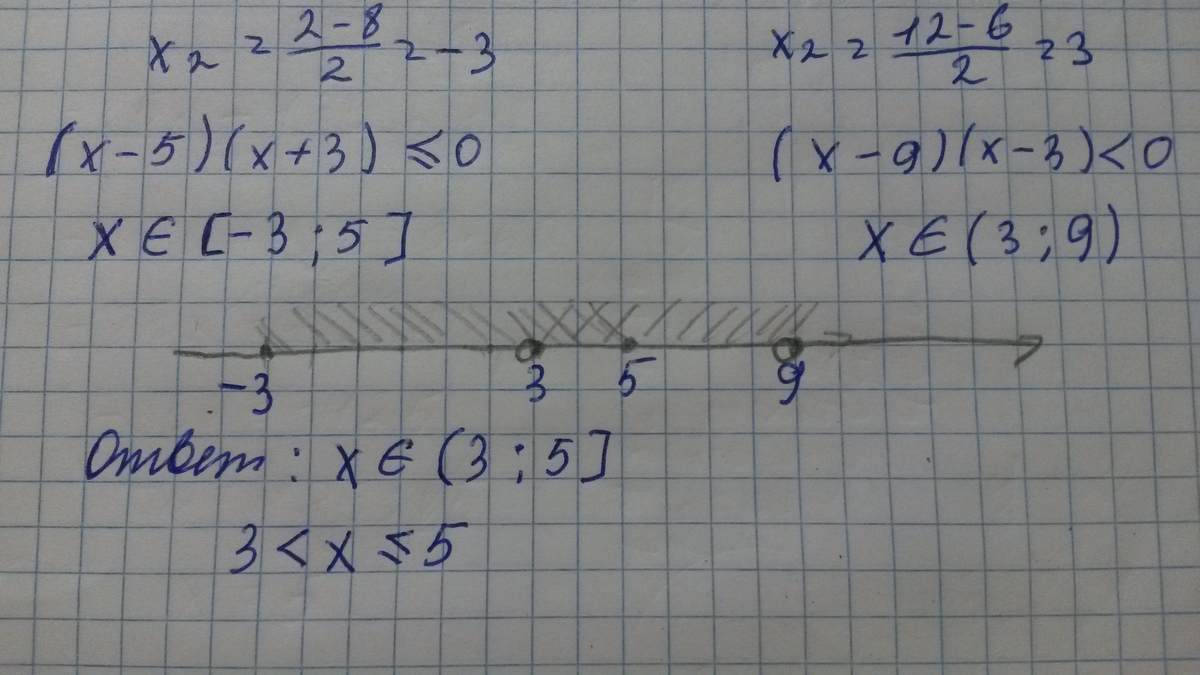 x₂ = (2-8)/2 = -3
x₂ = (12-6)/2 = 3
(x-5)(x+3) ≤ 0
(x-9)(x-3) < 0
x ∈ [-3 ; 5]
x ∈ (3 ; 9)
-3 3 5 9
Ответ: x ∈ (3 ; 5]
3 < x ≤ 5